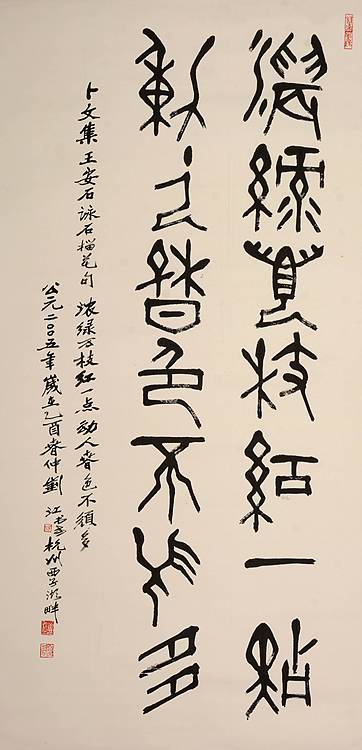 濃綠萬枝紅一點
動人春色不須多
卜文集王安石詠石榴花句 浓绿万枝红一点动人春色不須多
公元二〇〇五年歲在乙酉春仲劉江书於杭州西子湖畔